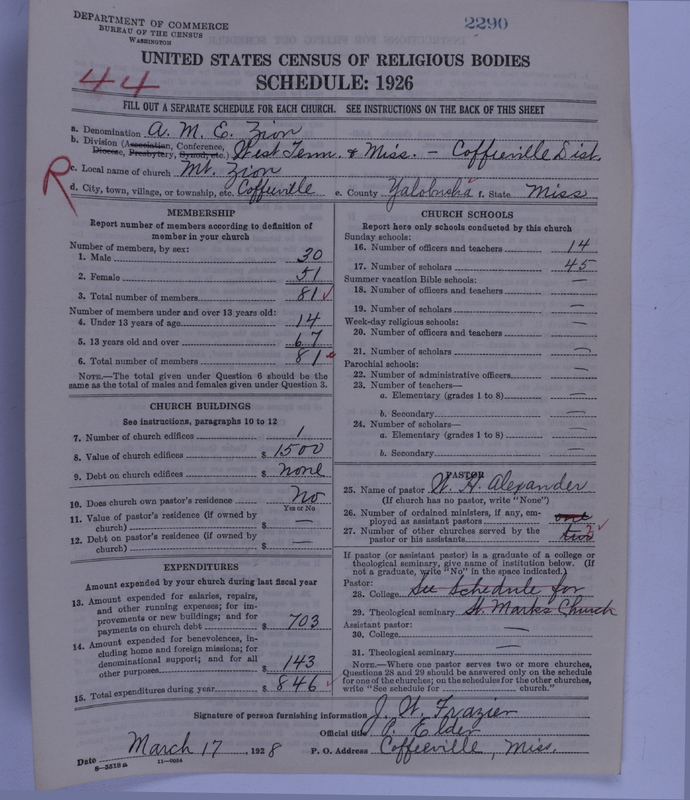 DEPARTMENT OF COMMERCE
BUREAU OF THE CENSUS
WASHINGTON
2290
UNITED STATES CENSUS OF RELIGIOUS BODIES
44
SCHEDULE: 1926
FILL OUT A SEPARATE SCHEDULE FOR EACH CHURCH. SEE INSTRUCTIONS ON THE BACK OF THIS SHEET
a. Denomination A. M. E. Zion
b. Division (Association, Conference, Diocese, Presbytery, Synod, etc.) West Tenn. & Miss. - Coffieville Dist.
R
c. Local name of church Mt. Zion
d. City, town, village, or township, etc. Coffieville e. County Yalobusha f. State Miss
MEMBERSHIP
Report number of members according to definition of
member in your church
Number of members, by sex:
1. Male 30
2. Female 51
3. Total number of members 81
Number of members under and over 13 years old:
4. Under 13 years of age 14
5. 13 years old and over 67
6. Total number of members 81
NOTE.—The total given under Question 6 should be the
same as the total of males and females given under Question 3.
CHURCH BUILDINGS
See instructions, paragraphs 10 to 12
7. Number of church edifices 1
8. Value of church edifices $ 1500
9. Debt on church edifices $ none
10. Does church own pastor's residence No
Yes or No
11. Value of pastor's residence (if owned by
church) $ —
12. Debt on pastor's residence (if owned by
church) $ —
EXPENDITURES
Amount expended by your church during last fiscal year
13. Amount expended for salaries, repairs,
and other running expenses; for im-
provements or new buildings; and for
payments on church debt $ 703
14. Amount expended for benevolences, in-
cluding home and foreign missions; for
denominational support; and for all
other purposes $ 143
15. Total expenditures during year $ 846
CHURCH SCHOOLS
Report here only schools conducted by this church
Sunday schools:
16. Number of officers and teachers 14
17. Number of scholars 45
Summer vacation Bible schools:
18. Number of officers and teachers —
19. Number of scholars —
Week-day religious schools:
20. Number of officers and teachers —
21. Number of scholars —
Parochial schools:
22. Number of administrative officers —
23. Number of teachers—
a. Elementary (grades 1 to 8) —
b. Secondary —
24. Number of scholars—
a. Elementary (grades 1 to 8) —
b. Secondary —
PASTOR
25. Name of pastor W. H. Alexander
(If church has no pastor, write "None")
26. Number of ordained ministers, if any, em-
ployed as assistant pastors one
27. Number of other churches served by the
pastor or his assistants two 2
If pastor (or assistant pastor) is a graduate of a college or
theological seminary, give name of institution below. (If
not a graduate, write "No" in the space indicated.)
Pastor:
28. College See Schedule for
29. Theological seminary St. Marks Church
Assistant pastor:
30. College —
31. Theological seminary —
NOTE.—Where one pastor serves two or more churches,
Questions 28 and 29 should be answered only on the schedule
for one of the churches; on the schedules for the other churches,
write "See schedule for church."
Signature of person furnishing information J. W. Frazier
Official title P. Elder
Date March 17, 1928 P. O. Address Coffieville, Miss.
8-3518a 11-9054